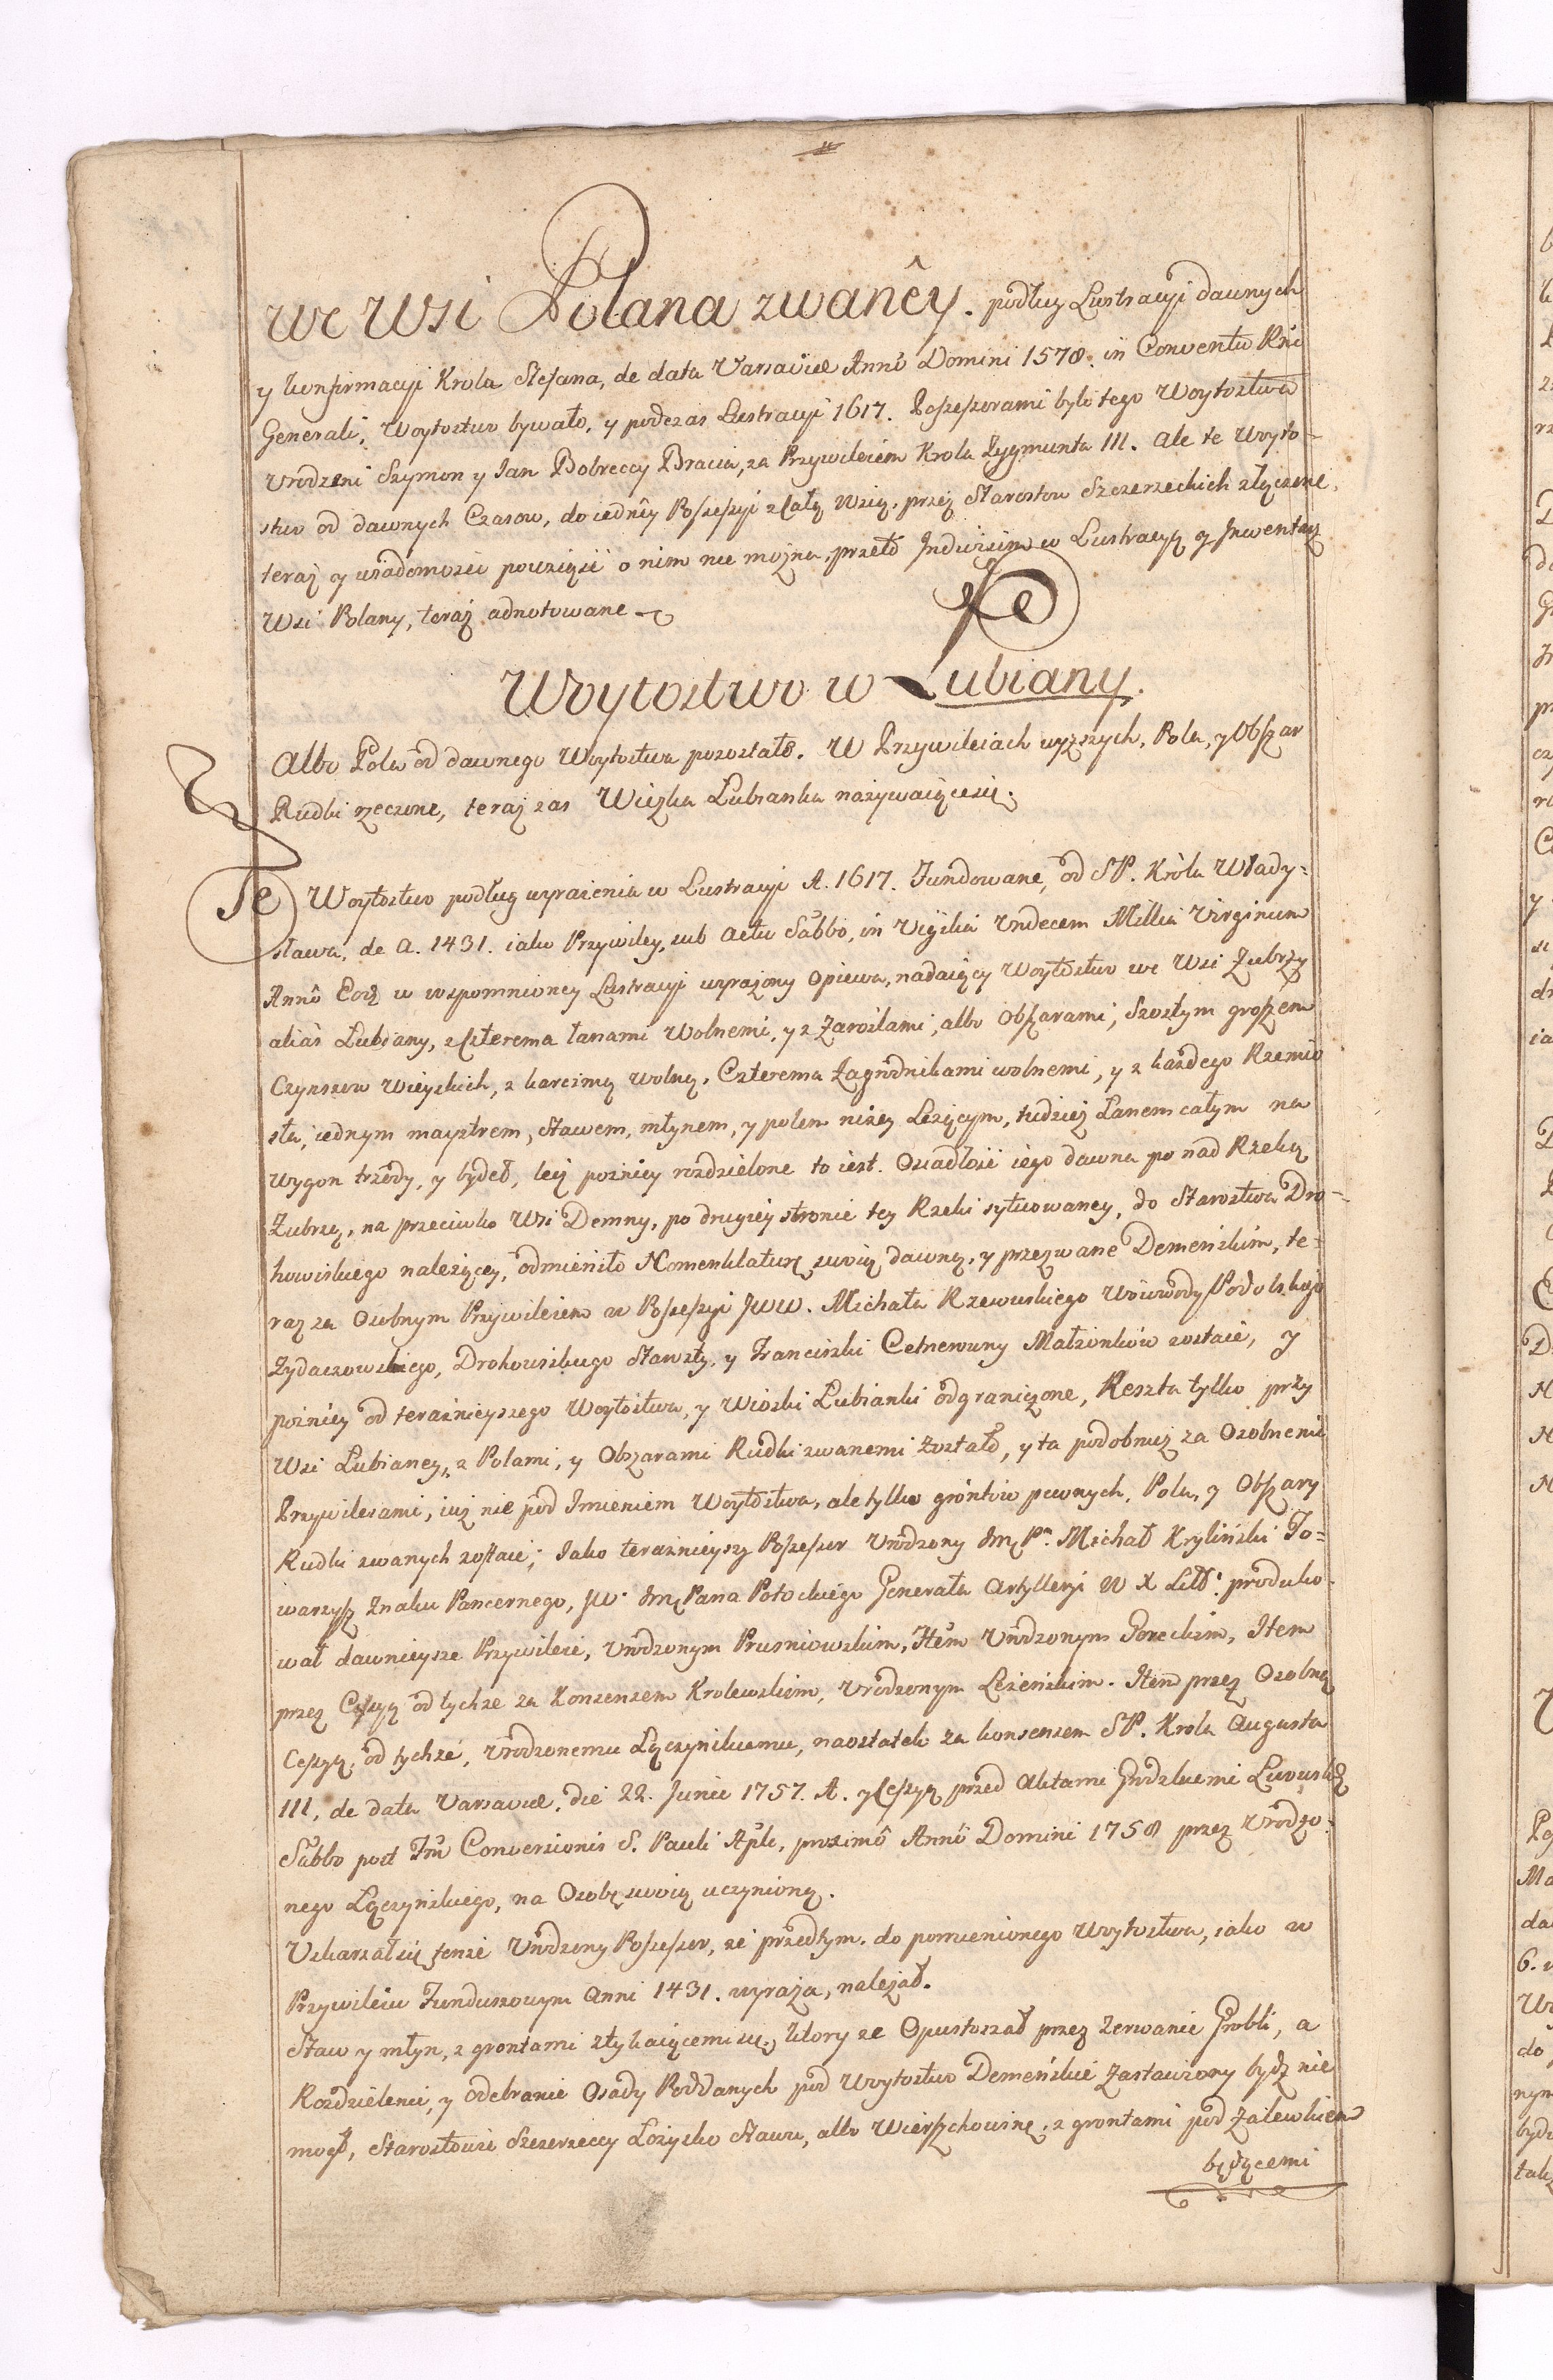 We Wsi Polana zwanêy. podług Lustracyi dawnych
y konfirmacyi Krola Stefana, de data Varsaviæ Annô Domini 1578. in Conventu Rni
Generali, Woytostwo bywało, y podczas Lustracyi 1617. Possessorami byli tego Woytostwa
Vrodzeni Szymon y Jan Dobreccy Bracia, za Przywileiem Krola Zygmunta III. ale te Woyto-
stwo od dawnych Czasow, do iednêy Possessyi z całą Wsią, przez Starostow Szczerzeckich złączone,
teraz y wiadomości powziąść o nim nie można, przeto Indivisim w Lustracyą y Inwentarz
Wsi Polany, teraz adnotowane
Woytostwo w Lubiany.
Albo Pola od dawnego Woytostwa pozostałe. W Przywileiach wyższych, Pola, y Obszar
Rudki rzeczone, teraz zas Wiozka Lubianka nazywaiącesię.
Te Woytostwo podług wyrażenia w Lustracyi A. 1617. Fundowane, od SP. Króla Włady-
sława, de A. 1431. iako Przywiley, sub actu Sabbo, in Vigilia Vndecem Millia Virginum
Annô Eod w wspomnioney Lustracyi wyrażony opiewa, nadaiący Woytostwo we Wsi Zubrzy
alias Lubiany, z czterema łanami Wolnemi, y z Zaroślami, albo Obszarami, Szostym groszem
Czynszow Wieyskich, z karczmą wolną, Czterema Zagrodnikami wolnemi, y z każdego Rzemio
sła, iednym maystrem, Stawem, młynem, y polem niżey Leżącym, tudzież Łanem całym na
wygon trzody, y bydeł, lecz poźniey rozdzielone to iest. Osiadłość iego dawna po nad Rzeką
Zubrzą, na przeciwko Wsi Demny, po drugiey stronie tey Rzeki sytuowaney, do Starostwa Dro-
howiskiego należącey, odmieniło Nomenklaturę swoią dawną, y przezwane Demeńskim, te-
raz za Osobnym Przywileiem w Possessyi JWW. Michała Rzewuskiego Woiewody Podolskiego
Zydaczowskiego, Drohowiskiego Starosty, y Franciszki Cetnerowny Małżonkow zostaie, y
poźniey od teraźnieyszego Woytostwa, y Wioski Lubianki odgraniczone, Reszta tylko przy
Wsi Lubianey, z Polami, y Obszarami Rudki zwanemi została, y ta podobnież za Osobnemi
Przywileiami, iuż nie pod Imieniem Woytostwa, ale tylko grontow pewnych, Pola, y Obszary
Rudki zwanych zostaie; Iako teraźnieyszy Possessor Vrodzony Jmć Pn. Michał Kryliński To-
warzysz Znaku Pancernego, JW. Jmć Pana Potockiego Generała Artylleryi W X Litt. produko-
wał dawnieysze Przywileie, Vrodzonym Prusniowskim, Item Vrodzonym Goreckim, Item
przez Cessyą od tychże za Konsensem Krolewskim, Vrodzonym Leżeńskim. Item przez Osobną
Cessyą, od tychże, Vrodzonemu Łączynskiemu, naostatek za konsensem SP. Krola Augusta
III, de data Varsaviæ, die 22. Junii 1757. A. y Cessyą przed Aktami Grodzkiemi Lwowskię
Sabbo post Fm Conversionis S. Pauli Apli, proximô Annô Domini 1758 przez Vrodzo-
nego Łączyńskiego, na Osobę swoią uczynioną.
Uskarżał się tenże Vrodzony Possessor, że przedtym do pomienionego Woytostwa, iako w
Przywileiu Funduszowym Anni 1431. wyraża, należał.
Staw y młyn, z grontami stykaiącemi się, ktory że Opustoszał przez Zerwanie Grobli, a
Rozdzielenie, y odebranie Osady Poddanych pod Woytostwo Demeńskie Zastawiony bydź nie
mogł, Starostowie Szczerzeccy Łożysko Stawu, albo Wierszchowinę, z grontami pod zalewkiem
będącemi